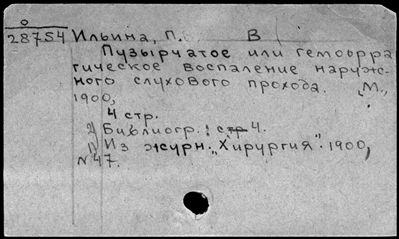 О
28754 Ильина, П. В
Пузырчатое или геморра
гическое воспаление наруж-
ного слухового прохода. М.,
1900,
4 стр.
2) Библиогр.: стр 4.
Из журн. „Хирургия". 1900,
N 47.